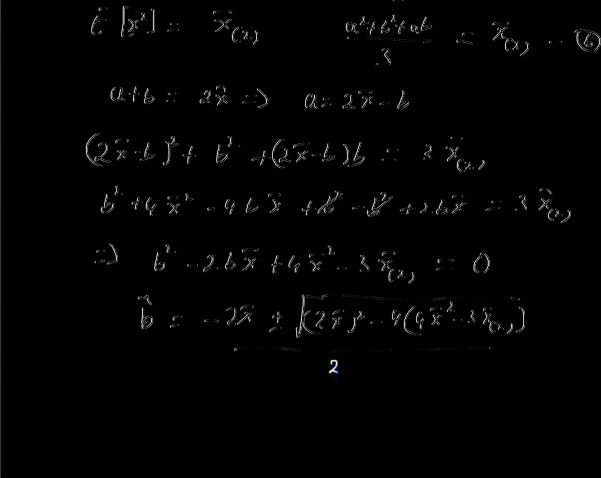 E[x²] = x̄₍₂₎    (a²+b²+ab)/3 = x̄₍₂₎ -- ⑥
a+b = 2x̄ => a = 2x̄ - b
(2x̄-b)² + b² + (2x̄-b)b = 3 x̄₍₂₎
b² + 4x̄² - 4bx̄ + b² - b² + 2bx̄ = 3 x̄₍₂₎
=> b² - 2bx̄ + 4x̄² - 3x̄₍₂₎ = 0
b̂ = (-2x̄ ± √((2x̄)² - 4(4x̄² - 3x̄₍₂₎)))/2